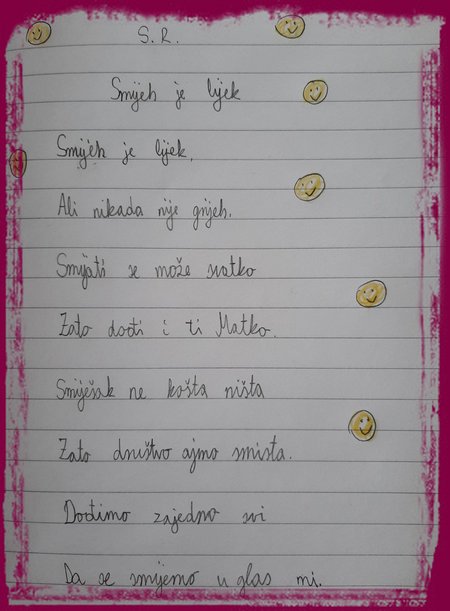 S. R.
Smijeh je lijek
Smijeh je lijek,
Ali nikada nije grijeh.
Smijati se može svatko
Zato dođi i ti Matko.
Smiješak ne košta ništa
Zato društvo ajmo smista.
Dođimo zajedno svi
Da se smijemo u glas mi.